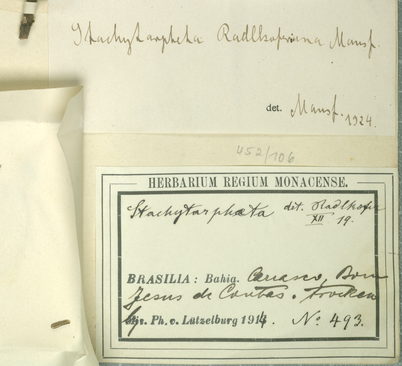 Stachytarpheta Radlkoferiana Mansf.
det. Mansf. 1924.
452/106
HERBARIUM REGIUM MONACENSE.
Stachytarpheta det. Radlkofer
XII 19.
BRASILIA: Bahia. Carrasco, Bom
Jesus de Contas. trocken
Ph. v. Lützelburg 1914. No 493.